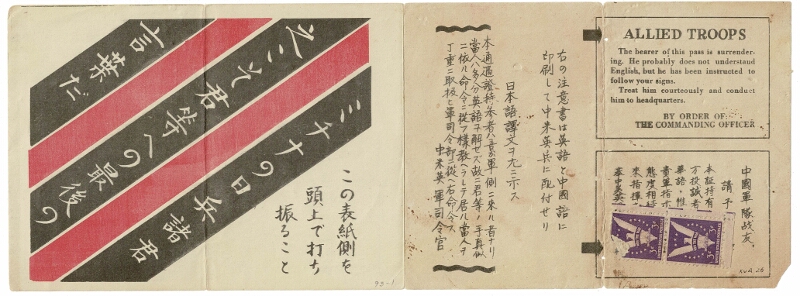 ALLIED TROOPS
The bearer of this pass is surrender-
ing. He probably does not understand
English, but he has been instructed to
follow your signs.
Treat him courteously and conduct
him to headquarters.
BY ORDER OF
THE COMMANDING OFFICER
中國軍隊战友,
請予
本証持有
万投誠者
華語,惟
貴軍指
態度相待
來指揮
右の注意書は英語と中國語に
印刷して中米英兵に配付せり
日本語譯文ヲ左ニ示ス
本通過證持参者ハ吾軍側ニ來ル者ナリ
當人ハ多分英語ヲ解セズ故ニ君等ノ手真似
ニ依ル命令ニ從フ様教ヘラレテ居ル當人ヲ
丁重ニ取扱ヒ軍司令部ニ從ヘ右命令ス
中米英軍司令官
ミチナの日兵諸君
之こそ君等への最後の
言葉だ
この表紙側を
頭上で打ち
振ること
93-1